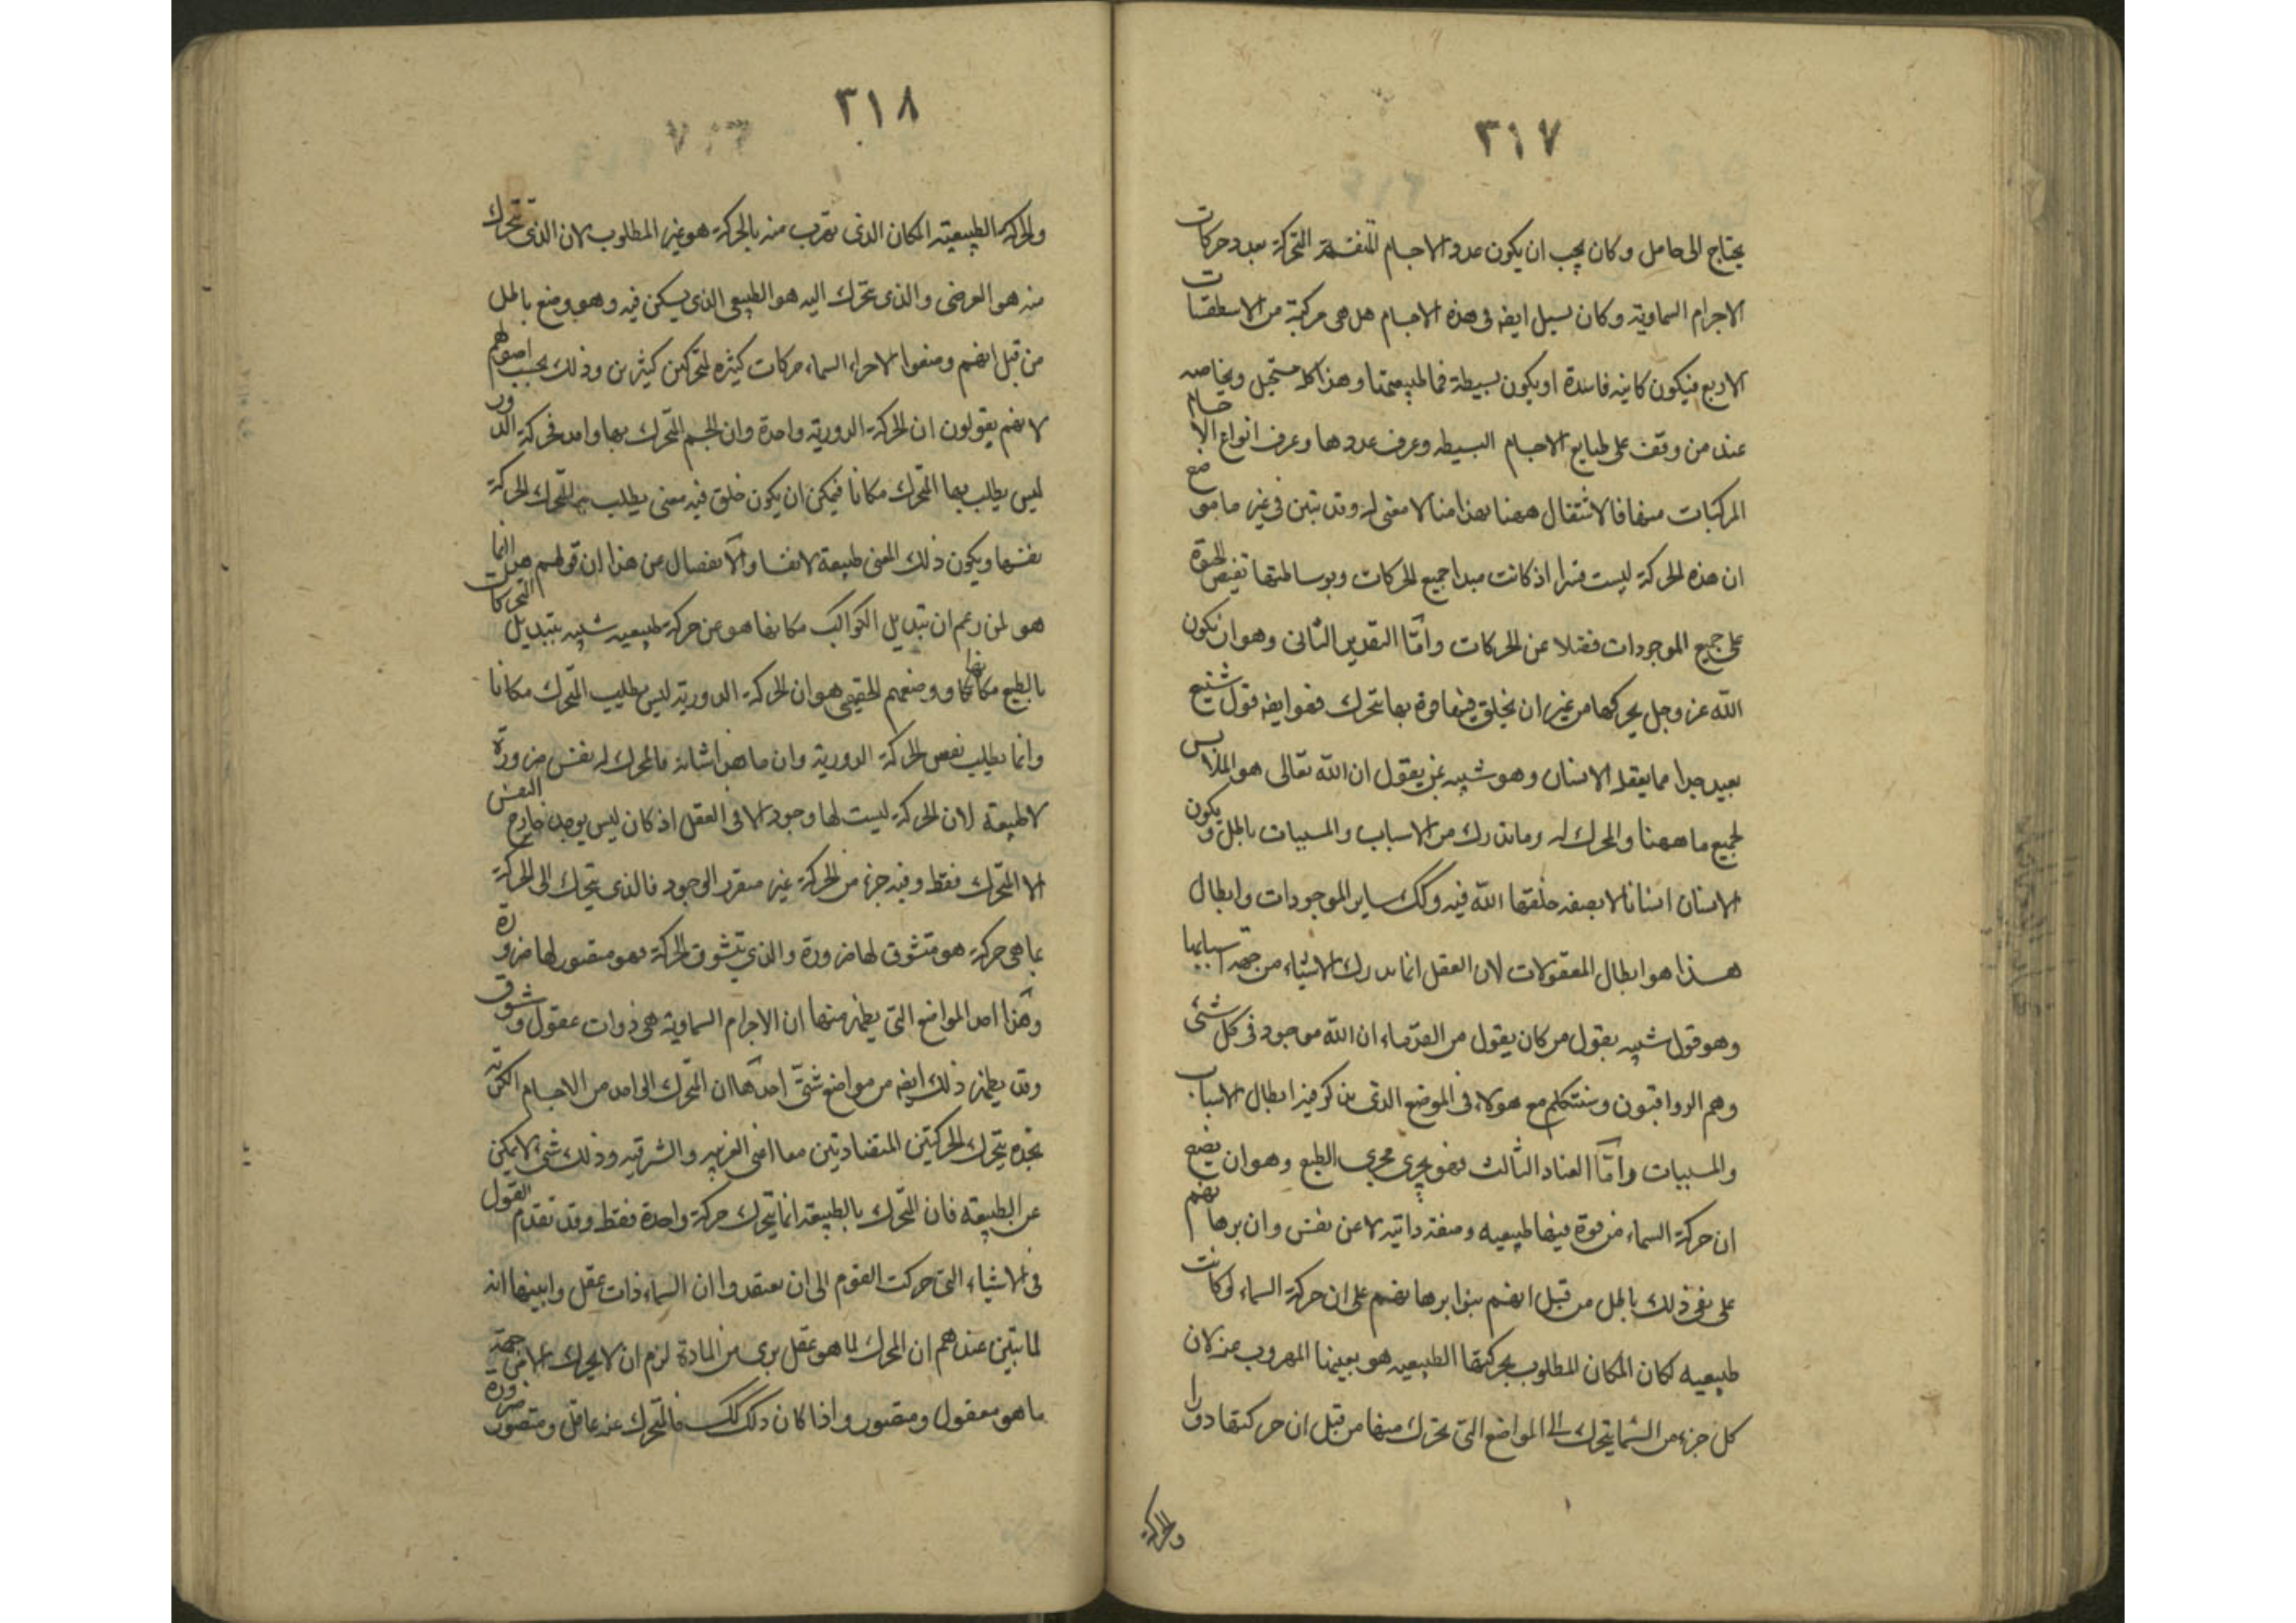 ٣١٧
يحتاج الى حامل وكان يجب ان يكون عدد الاجسام المتنفسة المتحركة بعدد حركات
الاجرام السماوية وكان يسيل ايضه فى هذه الاجسام هل هى مركبة من الاسطقسات
الاربع فيكون كاينه فاسدة او يكون بسيطة فما طبيعتها وهذا كله مستحيل وبخاصه
عند من وقف على طبايع الاجسام البسيطه وعرف عددها وعرف انواع الاجسام
المركبات منها فالاشتغال ههنا بهذا منا لا معنى له وقد تبين فى غير ما موضع
ان هذه الحركة ليست قسرا اذ كانت مبدا جميع الحركات وبوساطتها تفيض الحيوة
على جميع الموجودات فضلا عن الحركات وامّا التقدير الثانى وهو ان يكون
اللّه عز وجل يحركها من غير ان يخلق فيها قوة بها تتحرك فهو ايضه قول شنيع
بعيد جدا مما يعقله الانسان وهو شبيه بمن يقول ان اللّه تعالى هو الملابس
لجميع ما ههنا والمحرك له وما ندرك من الاسباب والمسببات باطل ويكون
الانسان انسانا لا بصفه خلقها اللّه فيه وكك ساير الموجودات وابطال
هذا هو ابطال المعقولات لان العقل انما يدرك الاشياء من جهة اسبابها
وهو قول شبيه بقول من كان يقول من القدماء ان اللّه موجود فى كل شئ
وهم الرواقيون وسنتكلم مع هولاء فى الموضع الذى نذكر فيه ابطال الاسباب
والمسببات وامّا العناد الثالث فهو يجرى مجرى الطبع وهو ان يضع
ان حركة السماء من قوة فيها طبيعيه وصفة ذاتيه لا عن نفس وان برهانهم
على نفى ذلك باطل من قبل انهم بنوا برهانهم على ان حركة السماء لو كانت
طبيعيه لكان المكان المطلوب بحركتها الطبيعيه هو بعينه المهروب عنه لان
كل جزء من السما يتحرك الى المواضع التى تحرك منها من قبل ان حركتها دورا
والحركة
٣١٨
والحركة الطبيعيه المكان الذى تهرب منه بالحركة هو غير المطلوب لان الذى تتحرك
منه هو العرضى والذى تتحرك اليه هو الطبيعى الذى يسكن فيه وهو وضع باطل
من قبل انهم وضعوا لاجزاء السماء حركات كثيره لمتحركين كثيرين وذلك بحسب اصولهم
لانهم يقولون ان الحركة الدورية واحدة وان الجسم المتحرك بها واحد فحركة الدور
ليس يطلب بها المتحرك مكانا فيمكن ان يكون خلق فيه معنى يطلب به المتحرك الحركة
نفسها ويكون ذلك المعنى طبيعة لا نفسا والانفصال من هذا ان قولهم هذا انما
هو لمن زعم ان تبديل الكواكب مكانها هو عن حركة طبيعيه شبيه بتبديل المتحركات
بالطبع مكانها ووضعهم الحقيقى هو ان الحركة الدورية ليس يطلب المتحرك مكانا
وانما يطلب نفس الحركة الدورية وان ما هذا شانه فالمحرك له نفس ضرورة
لا طبيعة لان الحركة ليست لها وجود الا فى العقل اذ كان ليس يوجد خارج النفس
الا المتحرك فقط وفيه جزء من الحركة غير متقرر الوجود فالذى يتحرك الى الحركة
بما هى حركة هو متشوق لها ضرورة والذى يتشوق الحركة فهو متصور لها ضرورة
وهذا احد المواضع التى يظهر منها ان الاجرام السماوية هى ذوات عقول وشوق
وقد يظهر ذلك ايضه من مواضع شتّى احدها ان المتحرك الواحد من الاجسام الكرّية
نجده يتحرك الحركتين المتضادتين معا اعنى الغربيه والشرقيه وذلك شئ لا يمكن
عن الطبيعة فان المتحرك بالطبيعة انما يتحرك حركة واحدة فقط وقد تقدم القول
فى الاشياء التى حركت القوم الى ان يعتقدوا ان السماء ذات عقل وابينها انه
لما تبين عندهم ان المحرك لها هو عقل برى من المادة لزم ان لا يحرك الا من جهة
ما هو معقول ومتصور واذا كان ذلك كك فالمتحرك عنه عاقل ومتصور ضرورة